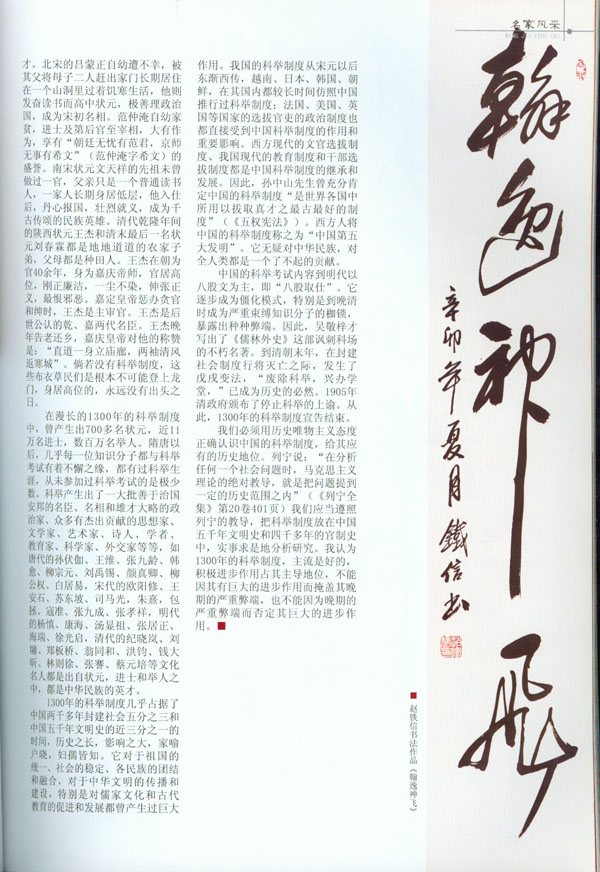 名家风采
MING JIA FENG CAI
才。北宋的吕蒙正自幼遭不幸，被
其父将母子二人赶出家门长期居住
在一个山洞里过着饥寒生活，他则
发奋读书而高中状元，极善理政治
国，成为宋初名相。范仲淹自幼家
贫，进士及第后官至宰相，大有作
为，享有“朝廷无忧有范君，京师
无事有希文”（范仲淹字希文）的
盛誉。南宋状元文天祥的先祖未曾
做过一官，父亲只是一个普通读书
人，一家人长期身居低层，他入仕
后，丹心报国，壮烈就义，成为千
古传颂的民族英雄。清代乾隆年间
的陕西状元王杰和清末最后一名状
元刘春霖都是地地道道的农家子
弟，父母都是种田人。王杰在朝为
官40余年，身为嘉庆帝师，官居高
位，刚正廉洁，一尘不染，伸张正
义，最恨邪恶。嘉定皇帝惩办贪官
和绅时，王杰是主审官。王杰是后
世公认的乾、嘉两代名臣。王杰晚
年告老还乡，嘉庆皇帝对他的称赞
是：“直道一身立庙廊，两袖清风
返寒城”。倘若没有科举制度，这
些布衣草民们是根本不可能登上龙
门，身居高位的，永远没有出头之
日。
在漫长的1300年的科举制度
中，曾产生出700多名状元，近11
万名进士，数百万名举人。隋唐以
后，几乎每一位知识分子都与科举
考试有着不懈之缘，都有过科举生
涯，从未参加过科举考试的是极少
数。科举产生出了一大批善于治国
安邦的名臣、名相和雄才大略的政
治家、众多有杰出贡献的思想家、
文学家、艺术家、诗人、学者、
教育家、科学家、外交家等等，如
唐代的孙伏伽、王维、张九龄、韩
愈、柳宗元、刘禹锡、颜真卿、柳
公权、白居易，宋代的欧阳修、王
安石、苏东坡、司马光，朱熹，包
拯、寇准、张九成、张孝祥，明代
的杨慎、康海、汤显祖、张居正、
海瑞、徐光启，清代的纪晓岚、刘
墉、郑板桥、翁同和、洪钧、钱大
昕、林则徐、张謇、蔡元培等文化
名人都是出自状元，进士和举人之
中，都是中华民族的英才。
1300年的科举制度几乎占据了
中国两千多年封建社会五分之三和
中国五千年文明史的近三分之一的
时间，历史之长，影响之大，家喻
户晓，妇孺皆知。它对于祖国的
统一、社会的稳定、各民族的团结
和融合，对于中华文明的传播和
建设，特别是对儒家文化和古代
教育的促进和发展都曾产生过巨大
作用。我国的科举制度从宋元以后
东渐西传，越南、日本、韩国、朝
鲜，在其国内都较长时间仿照中国
推行过科举制度；法国、美国、英
国等国家的选拔官吏的政治制度也
都直接受到中国科举制度的作用和
重要影响。西方现代的文官选拔制
度、我国现代的教育制度和干部选
拔制度都是中国科举制度的继承和
发展。因此，孙中山先生曾充分肯
定中国的科举制度“是世界各国中
所用以拔取真才之最古最好的制
度”（《五权宪法》）。西方人将
中国的科举制度称之为“中国第五
大发明”。它无疑对中华民族，对
全人类都是一个了不起的贡献。
中国的科举考试内容到明代以
八股文为主，即“八股取仕”。它
逐步成为僵化模式，特别是到晚清
时成为严重束缚知识分子的枷锁，
暴露出种种弊端。因此，吴敬梓才
写出了《儒林外史》这部讽刺科场
的不朽名著。到清朝末年，在封建
社会制度行将灭亡之际，发生了
戊戌变法，“废除科举，兴办学
堂，”已成为历史的必然。1905年
清政府颁布了停止科举的上谕。从
此，1300年的科举制度宣告结束。
我们必须用历史唯物主义态度
正确认识中国的科举制度，给其应
有的历史地位。列宁说：“在分析
任何一个社会问题时，马克思主义
理论的绝对教导，就是把问题提到
一定的历史范围之内”（《列宁全
集》第20卷401页）我们应当遵照
列宁的教导，把科举制度放在中国
五千年文明史和四千多年的官制史
中，实事求是地分析研究。我认为
1300年的科举制度，主流是好的，
积极进步作用占其主导地位，不能
因其有巨大的进步作用而掩盖其晚
期的严重弊端，也不能因为晚期的
严重弊端而否定其巨大的进步作
用。■
翰逸神飛
辛卯年夏月鐵信书
■赵铁信书法作品《翰逸神飞》